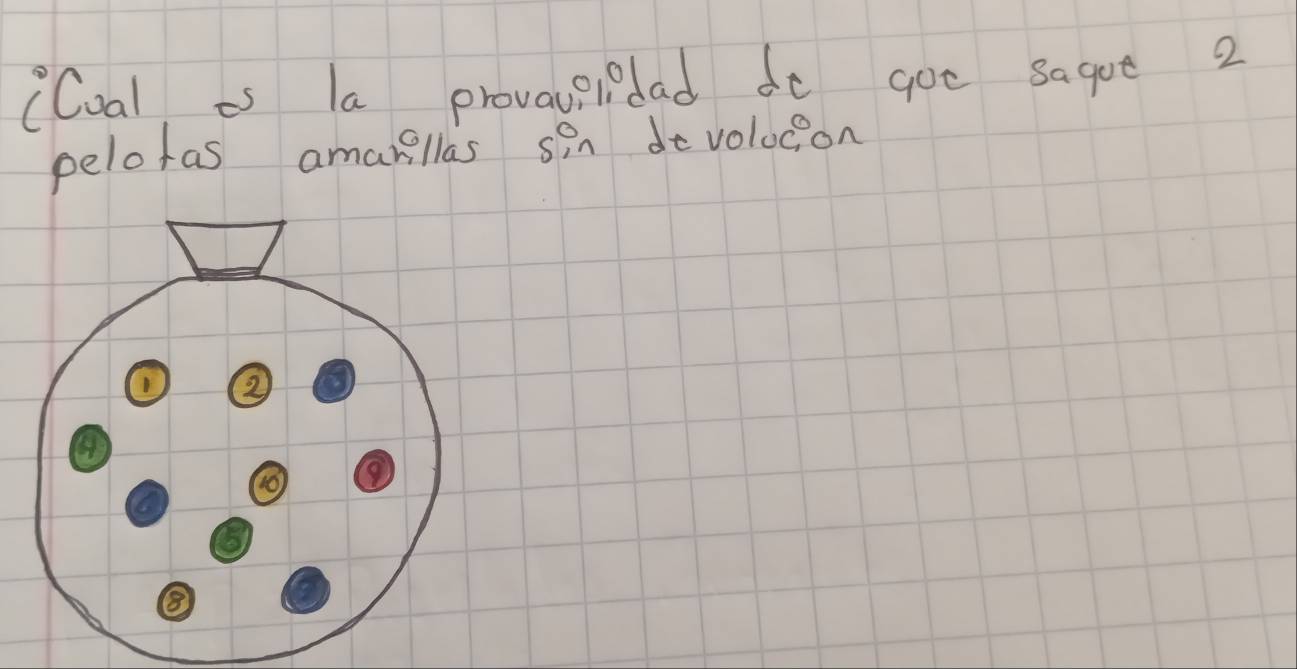 ¿Cual es la provavilidad de que saque 2
pelotas amarillas sin devolucion
1 2 3
4
10 9
6
5
8 7